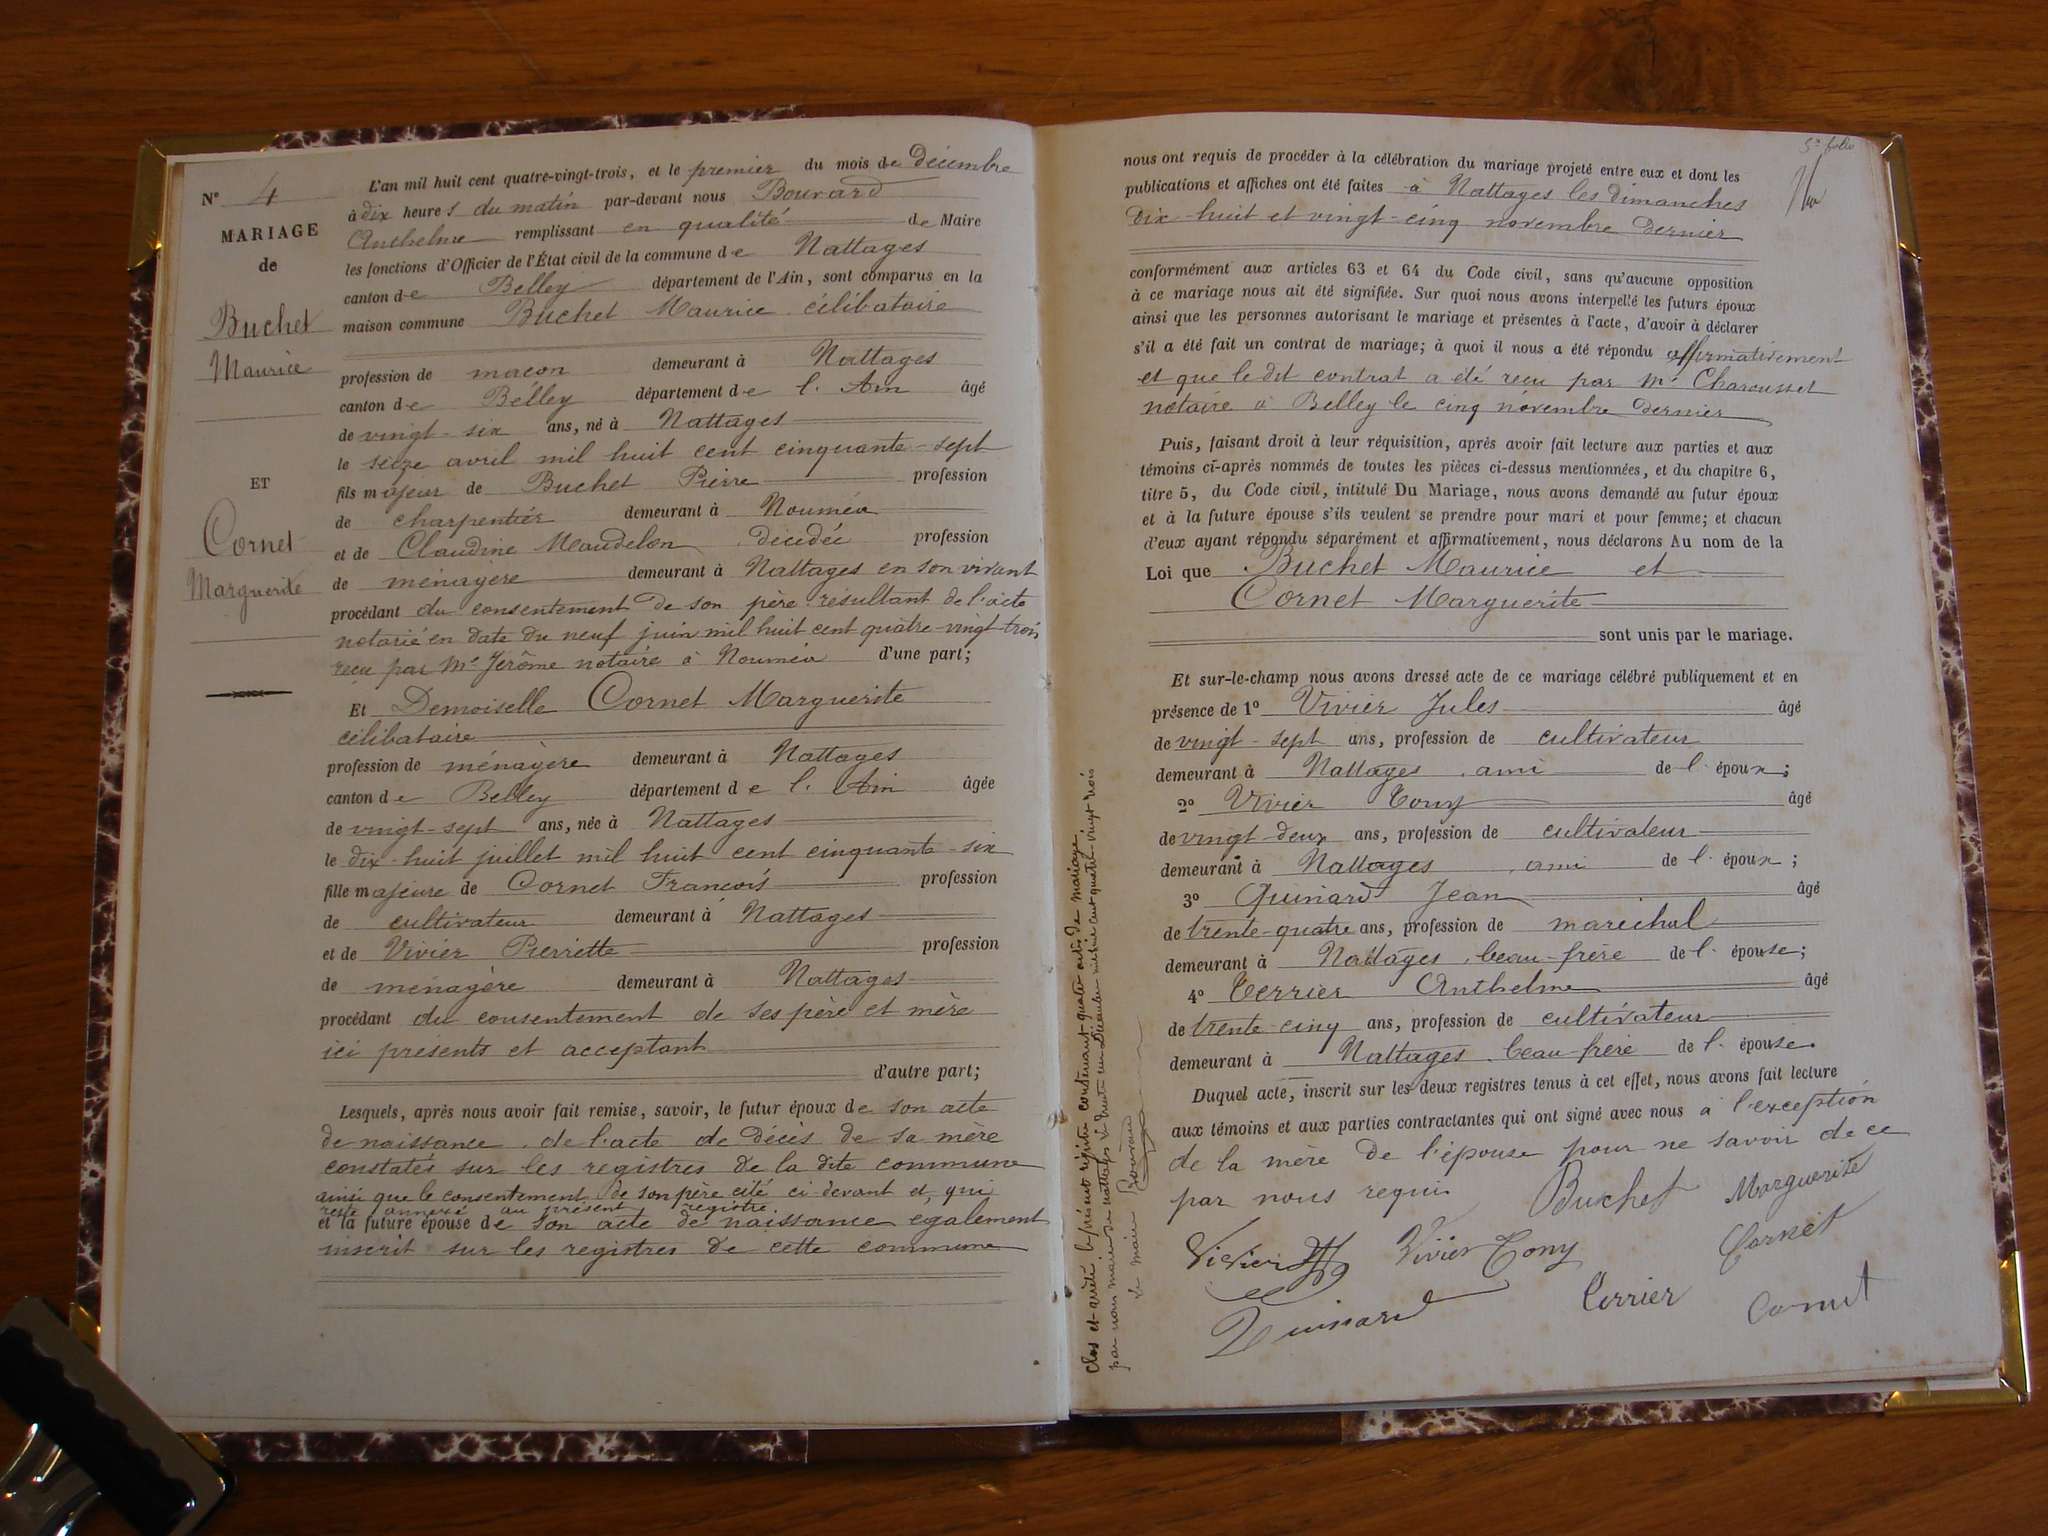 N° 4
MARIAGE
de
Buchet
Maurice
ET
Cornet
Marguerite
L'an mil huit cent quatre-vingt-trois, et le premier du mois de Décembre
à dix heures du matin par-devant nous Bouvard
Anthelme remplissant en qualité de Maire
les fonctions d'Officier de l'État civil de la commune de Nattages
canton de Belley département de l'Ain, sont comparus en la
maison commune Buchet Maurice célibataire
profession de maçon demeurant à Nattages
canton de Belley département de l'Ain âgé
de vingt-six ans, né à Nattages
le seize avril mil huit cent cinquante-sept
fils majeur de Buchet Pierre profession
de charpentier demeurant à Nouméa
et de Claudine Maudelon décédée profession
de ménagère demeurant à Nattages en son vivant
procédant du consentement de son père résultant de l'acte
notarié en date du neuf juin mil huit cent quatre-vingt-trois
reçu par Me Jérôme notaire à Nouméa d'une part;
Et Demoiselle Cornet Marguerite
célibataire
profession de ménagère demeurant à Nattages
canton de Belley département de l'Ain âgée
de vingt-sept ans, née à Nattages
le dix-huit juillet mil huit cent cinquante-six
fille majeure de Cornet François profession
de cultivateur demeurant à Nattages
et de Vivier Pierrette profession
de ménagère demeurant à Nattages
procédant du consentement de ses père et mère
ici présents et acceptant
d'autre part;
Lesquels, après nous avoir fait remise, savoir, le futur époux de son acte
de naissance, de l'acte de décès de sa mère
constatés sur les registres de la dite commune
ainsi que le consentement de son père cité ci-devant et qui
reste annexé au présent registre
et la future épouse de son acte de naissance également
inscrit sur les registres de cette commune
5e folio
nous ont requis de procéder à la célébration du mariage projeté entre eux et dont les
publications et affiches ont été faites à Nattages les dimanches
dix-huit et vingt-cinq novembre dernier
conformément aux articles 63 et 64 du Code civil, sans qu'aucune opposition
à ce mariage nous ait été signifiée. Sur quoi nous avons interpellé les futurs époux
ainsi que les personnes autorisant le mariage et présentes à l'acte, d'avoir à déclarer
s'il a été fait un contrat de mariage; à quoi il nous a été répondu affirmativement
et que le dit contrat a été reçu par Me Charousset
notaire à Belley le cinq novembre dernier
Puis, faisant droit à leur réquisition, après avoir fait lecture aux parties et aux
témoins ci-après nommés de toutes les pièces ci-dessus mentionnées, et du chapitre 6,
titre 5, du Code civil, intitulé Du Mariage, nous avons demandé au futur époux
et à la future épouse s'ils veulent se prendre pour mari et pour femme; et chacun
d'eux ayant répondu séparément et affirmativement, nous déclarons Au nom de la
Loi que Buchet Maurice et
Cornet Marguerite
sont unis par le mariage.
Et sur-le-champ nous avons dressé acte de ce mariage célébré publiquement et en
présence de 1° Vivier Jules âgé
de vingt-sept ans, profession de cultivateur
demeurant à Nattages, ami de l'époux;
2° Vivier Tony âgé
de vingt-deux ans, profession de cultivateur
demeurant à Nattages, ami de l'époux;
3° Quinard Jean âgé
de trente-quatre ans, profession de maréchal
demeurant à Nattages, beau-frère de l'épouse;
4° Terrier Anthelme âgé
de trente-cinq ans, profession de cultivateur
demeurant à Nattages, beau-frère de l'épouse.
Duquel acte, inscrit sur les deux registres tenus à cet effet, nous avons fait lecture
aux témoins et aux parties contractantes qui ont signé avec nous à l'exception
de la mère de l'épouse pour ne savoir de ce
par nous requis
Buchet Marguerite
Cornet
Vivier Vivier Tony
Quinard Terrier Cornet
Clos et arrêté le présent registre contenant quatre actes de mariage
par nous maire de Nattages le trente un Décembre mil huit cent quatre-vingt trois
Le maire Bouvard